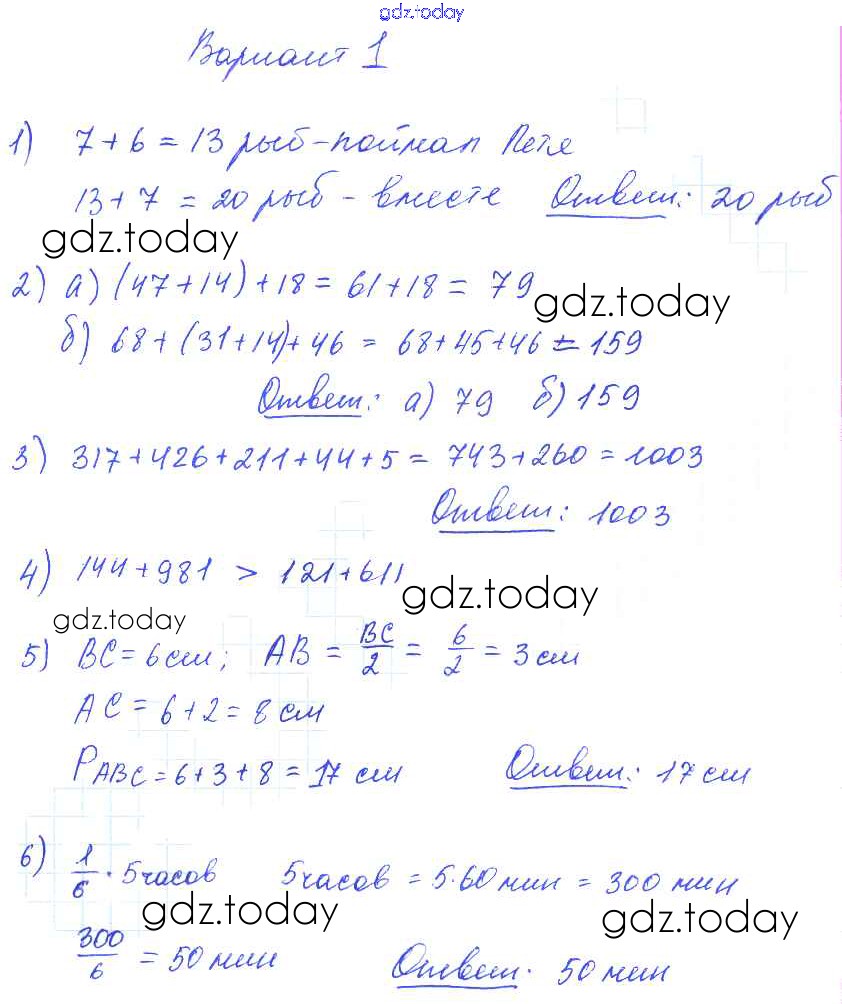 gdz.today
Вариант 1
1) 7 + 6 = 13 рыб - поймал Петя
13 + 7 = 20 рыб - вместе Ответ: 20 рыб
gdz.today
2) а) (47 + 14) + 18 = 61 + 18 = 79
gdz.today
б) 68 + (31 + 14) + 46 = 68 + 45 + 46 = 159
Ответ: а) 79 б) 159
3) 317 + 426 + 211 + 44 + 5 = 743 + 260 = 1003
Ответ: 1003
4) 144 + 981 > 121 + 611
gdz.today
gdz.today
5) BC = 6 см; AB = BC/2 = 6/2 = 3 см
AC = 6 + 2 = 8 см
P ABC = 6 + 3 + 8 = 17 см Ответ: 17 см
6) 1/6 · 5 часов 5 часов = 5·60 мин = 300 мин
gdz.today gdz.today
300/6 = 50 мин Ответ. 50 мин